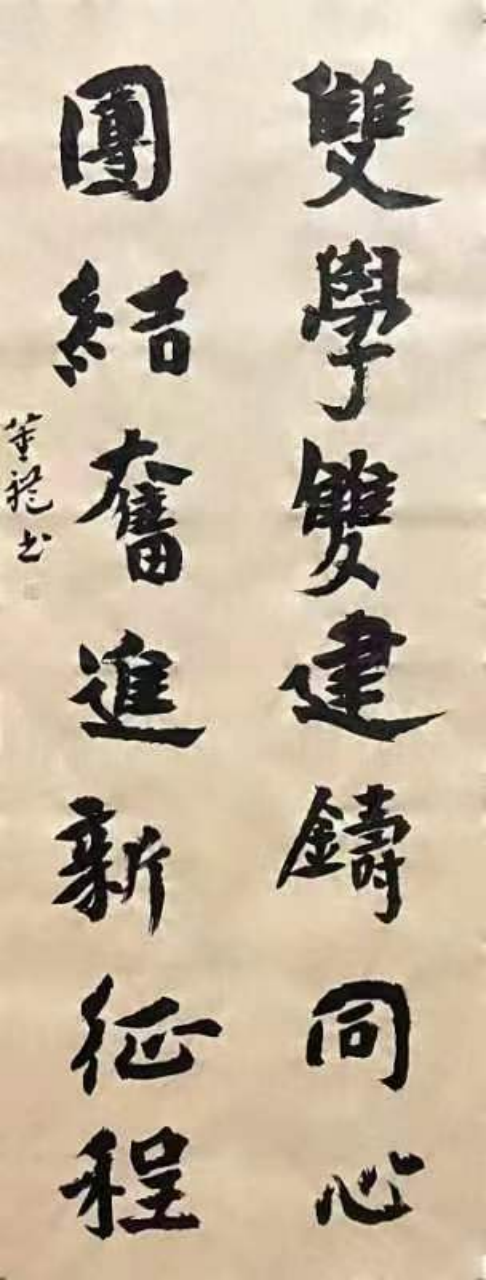 雙學雙建鑄同心
團結奮進新征程
董禮书